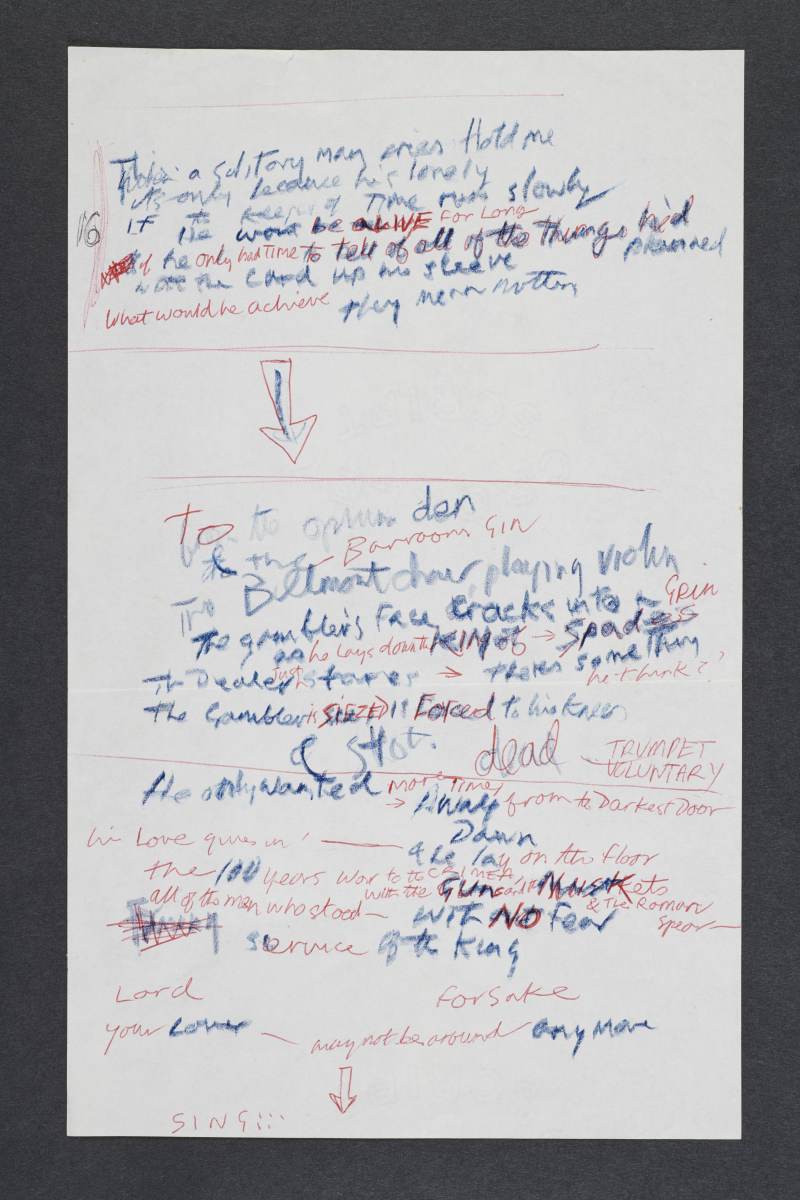 When a solitary man cries Hold me
it's only because he's lonely
16 if the keeper of Time runs slowly
He wont be ALIVE For Long
if he only had Time to tell of all of the things he'd planned
with the card up his sleeve
What would he achieve they mean nothing
To the opium den
the Barroom GIN
The Bellmont chair playing violin
The gambler's Face Cracks into a GRIN
as he lays down the KING of → Spades
The Dealer Just stares → there's something he thinks?
The Gambler is SIEZED & Forced to his knees
& shot. dead TRUMPET VOLUNTARY
He only wanted more time
→ Away from to Darkest Door
his Love gives in Dawn
& he lay on the floor
the 100 years war to the CRIMEA
with the Gun Muskets & The Roman Spear
all of the men who stood with NO Fear
service of the King
Lord Forsake
your Love may not be around anymore
SING!!!